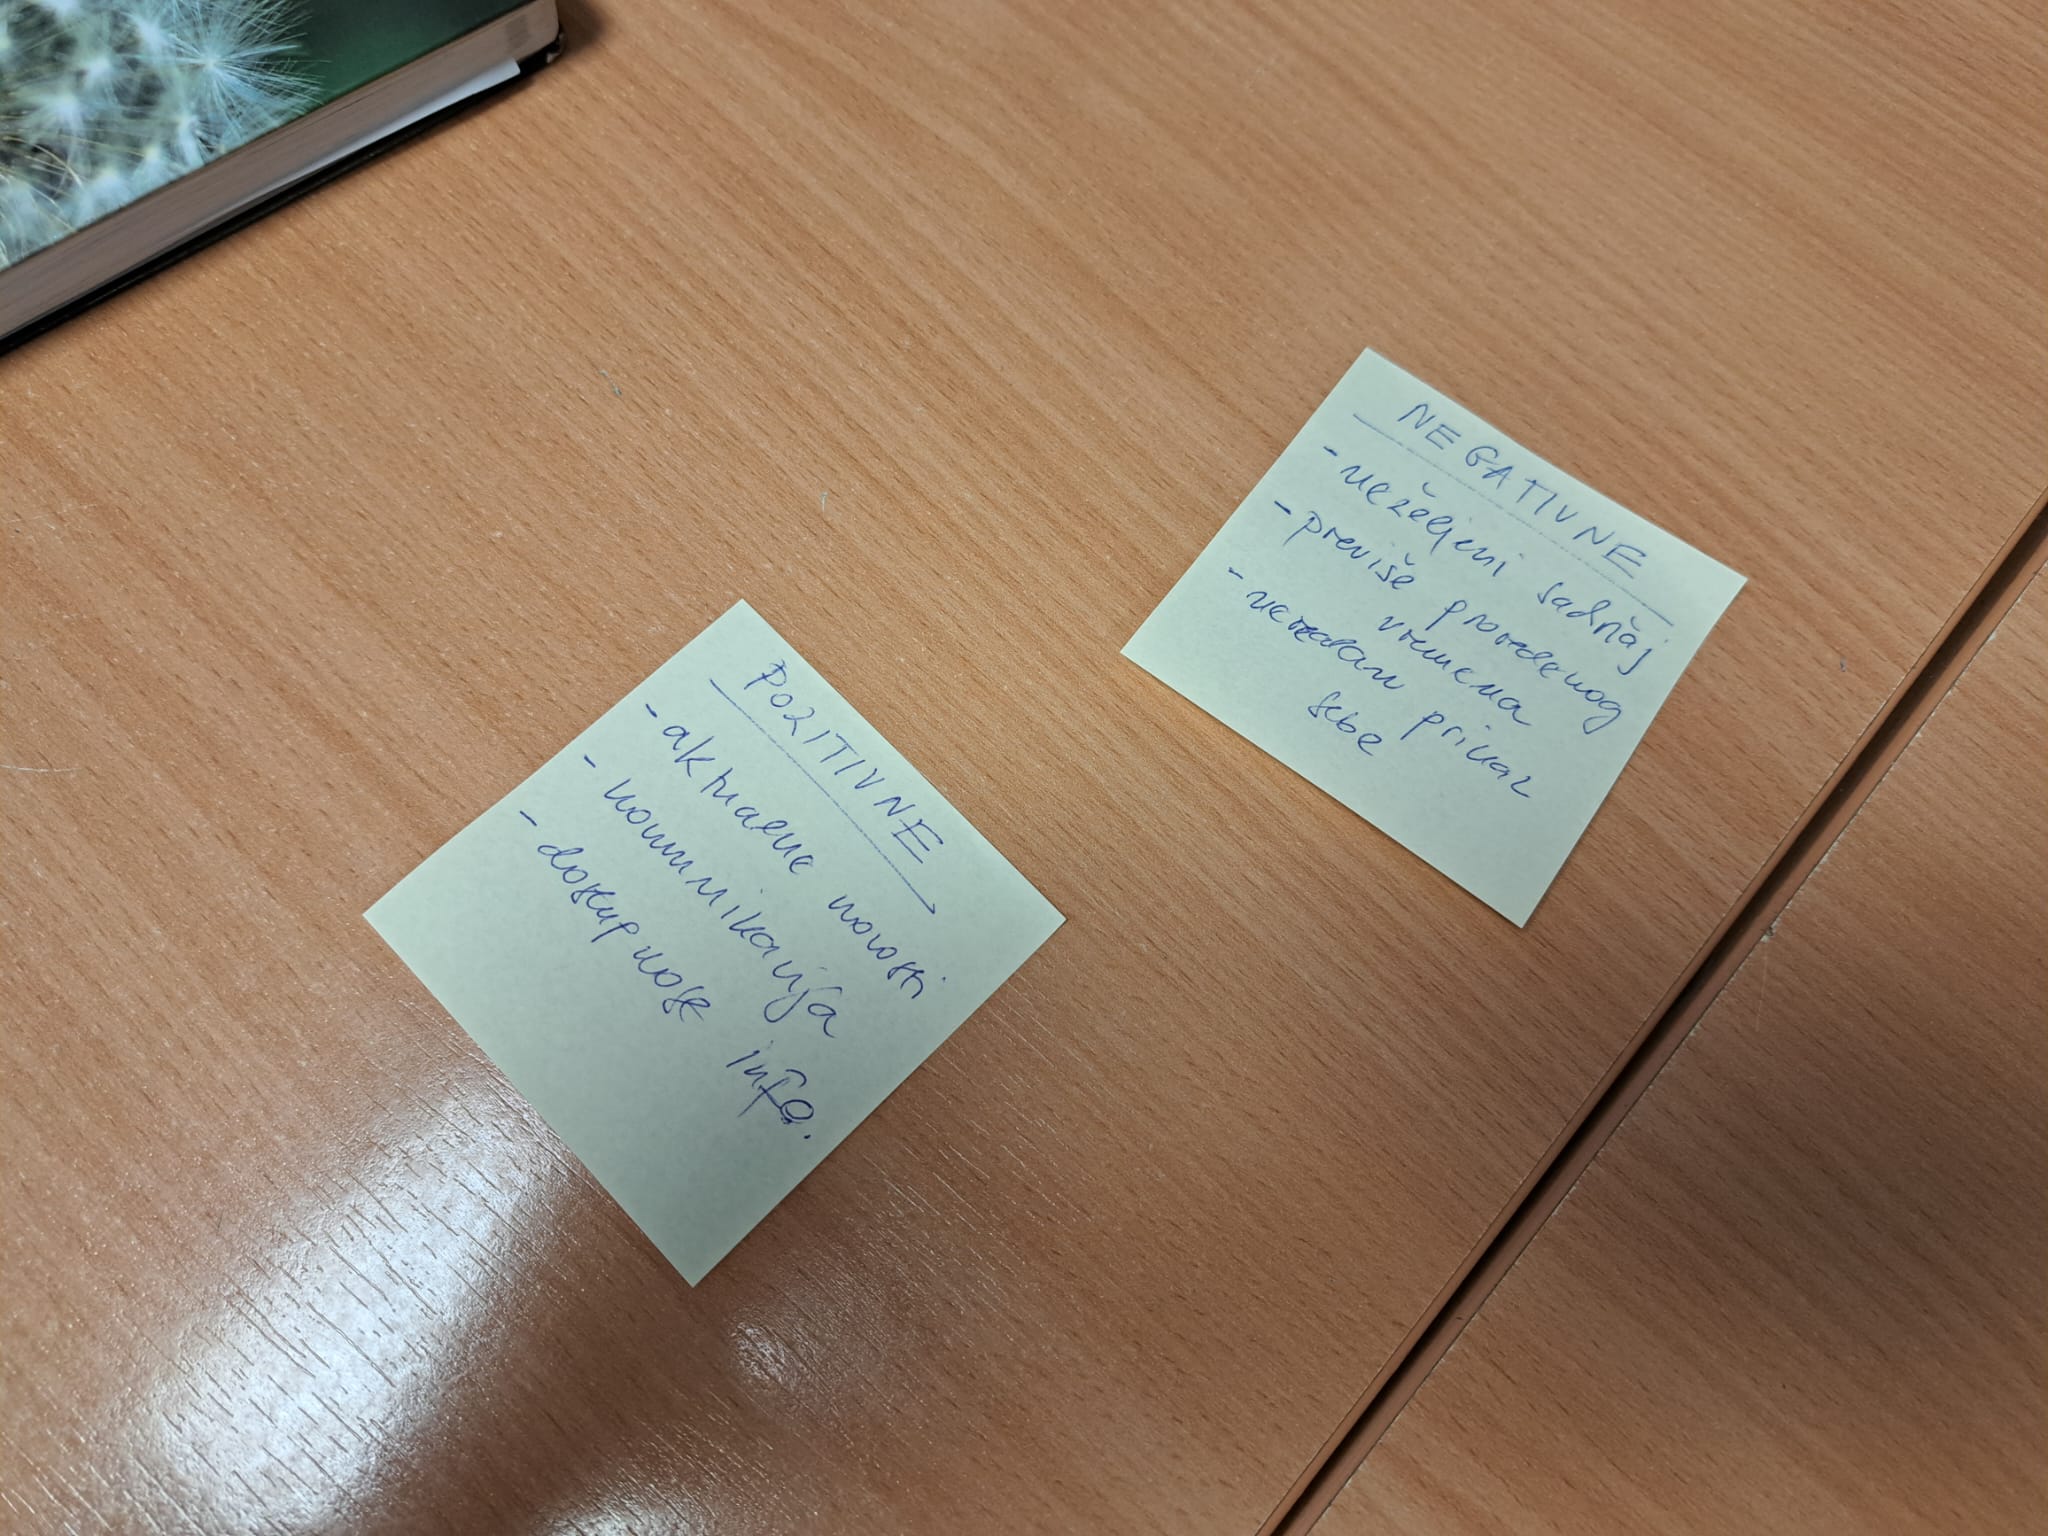 POZITIVNE
- aktualne novosti
- komunikacija
- dostupnost info.
NEGATIVNE
- neželjeni sadržaj
- previše provedenog
vremena
- nerealan prikaz
sebe